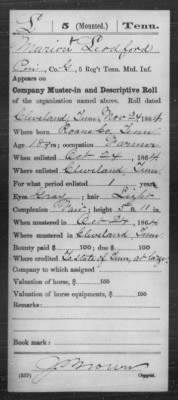 L 5 (Mounted.) Tenn.
Marion Ledford
Co. G, 5 Reg't Tenn. Mtd. Inf.
Appears on
Company Muster-in and Descriptive Roll
of the organization named above. Roll dated
Cleveland, Tenn, Nov 24, 1864
Where born Roane Co Tenn
Age 18 y'rs; occupation Farmer
When enlisted Oct 24, 1864
Where enlisted Cleveland, Tenn.
For what period enlisted 1 years.
Eyes Gray; hair Light
Complexion Fair; height 5 ft. 11 in.
When mustered in Oct 24, 1864
Where mustered in Cleveland, Tenn.
Bounty paid $ 100; due $ 100
Where credited To State of Tenn, at large
Company to which assigned
Valuation of horse, $ 100
Valuation of horse equipments, $ 100
Remarks:
Book mark:
Brown
(339) Copyist.